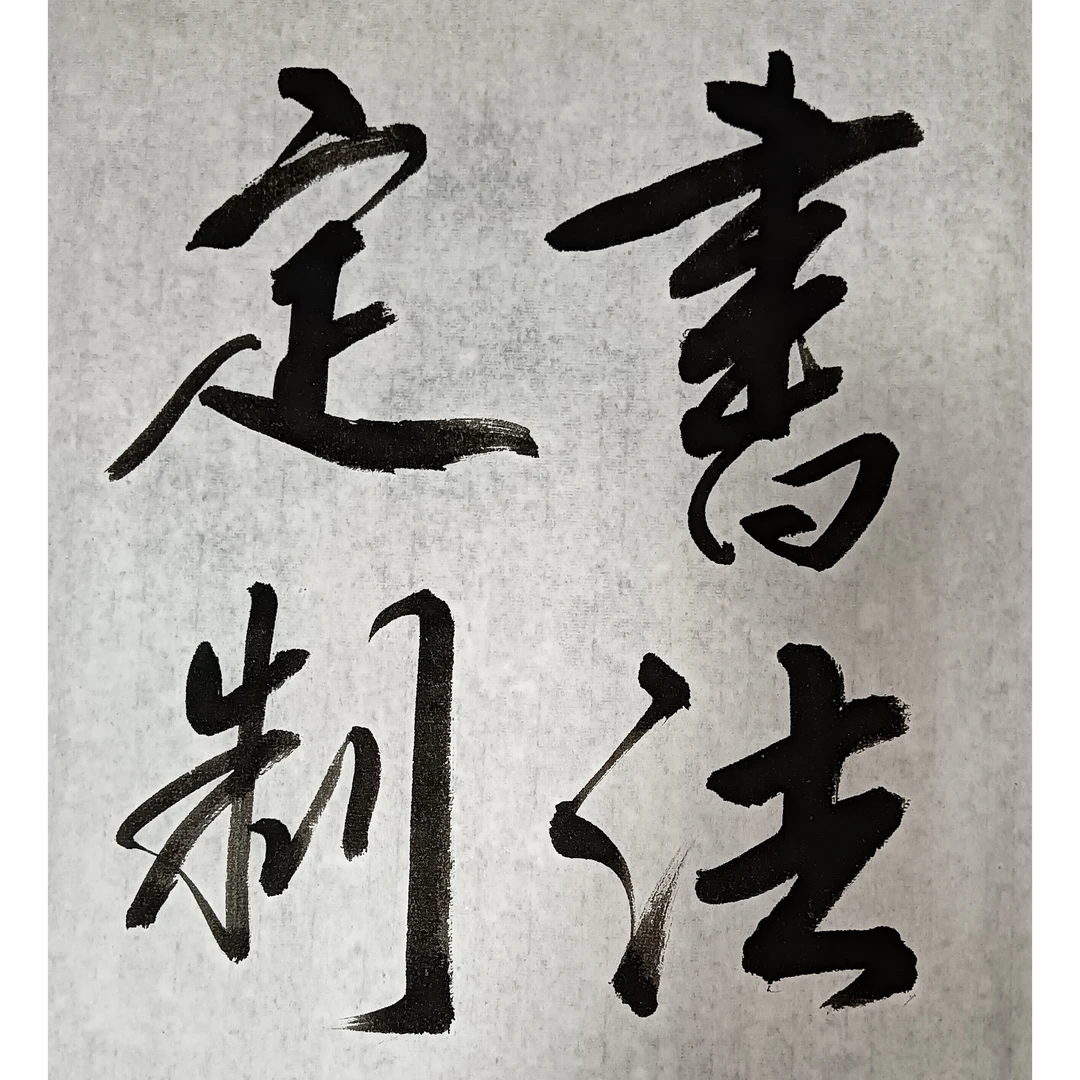 書法
定制